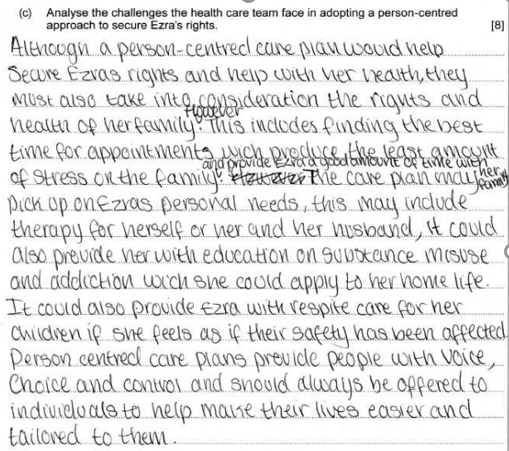 (c) Analyse the challenges the health care team face in adopting a person-centred
approach to secure Ezra's rights. [8]
Although a person-centred care plan would help
Secure Ezras rights and help with her health, they
must also take into consideration the rights and
However
health of her family. This includes finding the best
time for appointments wich produce the least amount
and provide Ezra a good amount of time with
her
family
of stress on the family. However The care plan may
pick up on Ezras personal needs, this may include
therapy for herself or her and her husband, it could
also provide her with education on substance misuse
and addiction wich she could apply to her home life.
It could also provide Ezra with respite care for her
children if she feels as if their safety has been affected.
Person centred care plans provide people with voice,
Choice and control and should always be offered to
individuals to help make their lives easier and
tailored to them.